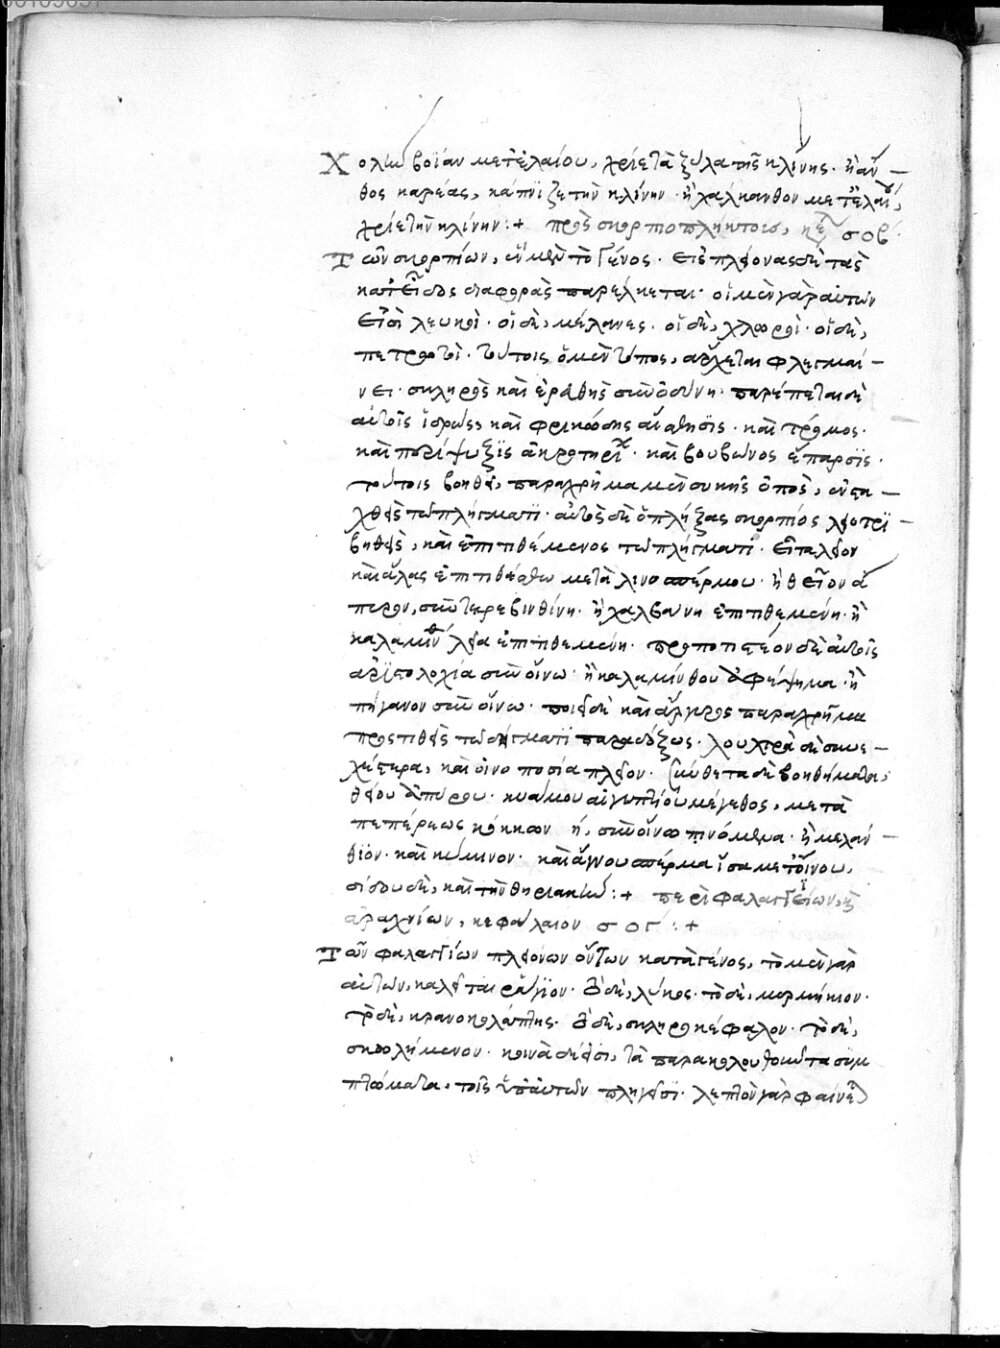 Χολὴν βοΐαν μετ' ἐλαίου, χρίε τὰ ξύλα τῆς κλίνης· ἢ ἄν
θος καρέας, κάπνιζε τὴν κλίνην· ἢ χάλκανθον μετ' ἐλαίου,
χρίε τὴν κλίνην :+ πρὸς σκορπιοπλήκτους, κε σοβ
Τῶν σκορπίων, ἓν μὲν τὸ γένος· εἰς πλέονας δὲ τὰς
κατ' εἶδος διαφορὰς παρέλκεται· οἱ μὲν γὰρ αὐτῶν
εἰσὶ λευκοὶ· οἱ δὲ, μέλανες· οἱ δὲ, χλωροὶ· οἱ δὲ,
τούτοις ὁ μὲν τόπος, ἄρχεται φλεγμαί
νει· σκληρὸς καὶ ἐρυθρὸς σὺν ὀδύνη· παρέπεται δὲ
αὐτοῖς ἱδρώς, καὶ φρικώδης αἴσθησις· καὶ τρόμος·
καὶ περίψυξις ἀκρωτηρίων· καὶ βουβῶνος ἔπαρσις·
τούτοις βοηθεῖ, παραχρῆμα μὲν συκῆς ὀπὸς, ἐνστα
χθεὶς τῶ πλήγματι· αὐτὸς δὲ ὁ πλήξας σκορπίος λειοτρι
βηθεὶς, καὶ ἐπιτιθέμενος τῶ πλήγματι· εἶτα λεῖον
καὶ ἅλας ἐπιτιθέσθω μετὰ λινοσπέρμου· ἢ θεῖον ἄ
πυρον, σὺν τερεβινθίνη· ἢ χαλβάνη ἐπιτιθεμένη· ἢ
καλαμίνθη λεία ἐπιτιθεμένη· προποτιστέον δὲ αὐτοῖς
ἀριστολοχία σὺν οἴνω· ἢ καλαμίνθου ἀφέψημα· ἢ
πήγανον σὺν οἴνω· ποιεῖ δὲ καὶ ἄργυρος παραχρῆμα
προστιθεὶς τῶ δήγματι παραδόξως·
καὶ οἰνοποσία πλέον· σύνθετα δὲ βοηθήματα,
θείου ἀπύρου· κυάμου αἰγυπτίου μέγεθος, μετὰ
πεπέρεως κόκκων η, σὺν οἴνω πινόμενα· ἢ μελάν
θιον· καὶ κύμινον· καὶ ἄγνου σπέρμα ἴσα μετ' οἴνου,
δίδου δὲ, καὶ τὴν θηριακὴν :+ περὶ φαλαγγίων, κ
ἀραχνίων, κεφάλαιον σογ :+
Τῶν φαλαγγίων πλειόνων ὄντων κατὰ γένος, τὸ μὲν γὰρ
αὐτῶν, καλεῖται ῥάγιον· ὁ δὲ, λύκος· τὸ δὲ, μυρμήκιον·
τὸ δὲ, κρανοκολάπτης· ὁ δὲ, σκληροκέφαλον· τὸ δὲ,
σκωλήμενον· κοινὰ δέ εἰσι, τὰ παρακολουθοῦντα συμ
πτώματα, τοῖς ὑπ' αὐτῶν πληγεῖσι· λεπτὸν γὰρ φαίνε